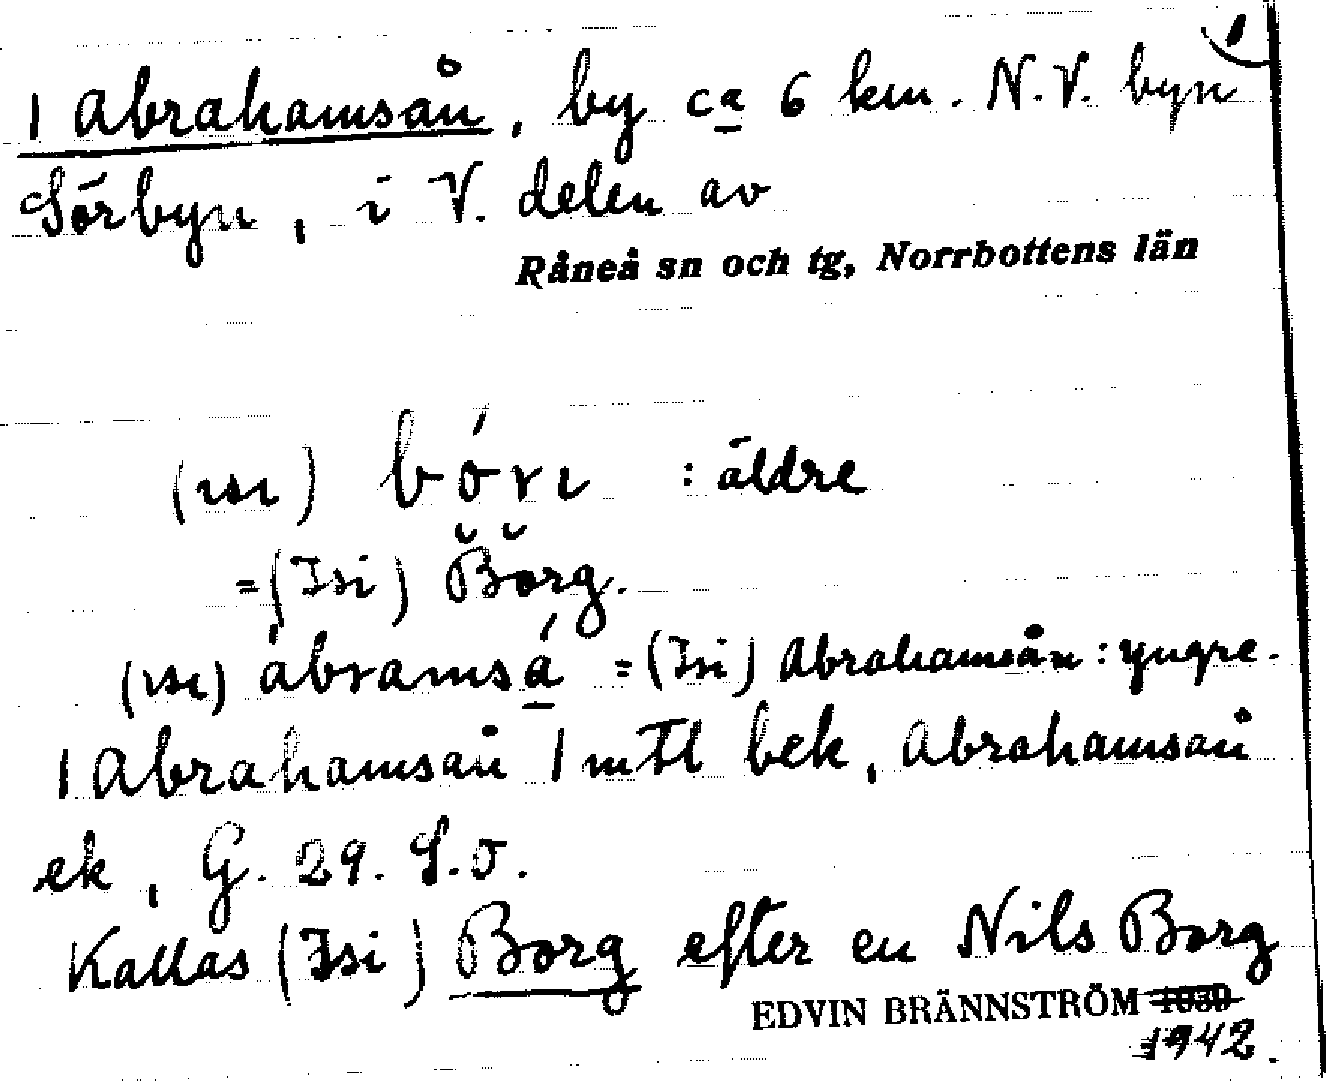 1
1 Abrahamsån, by ca 6 km. N.V. byn
Sörbyn, i V. delen av
Råneå sn och tg, Norrbottens län
(ısı) bórı : äldre
=(Isi) Börg.
(ısı) ábramsá =(Isi) Abrahamsån: yngre.
1 Abrahamsån 1 mtl bek, Abrahamsån
ek, G. 29. S.O.
Kallas (Isi) Borg efter en Nils Borg
EDVIN BRÄNNSTRÖM 1939
1942.